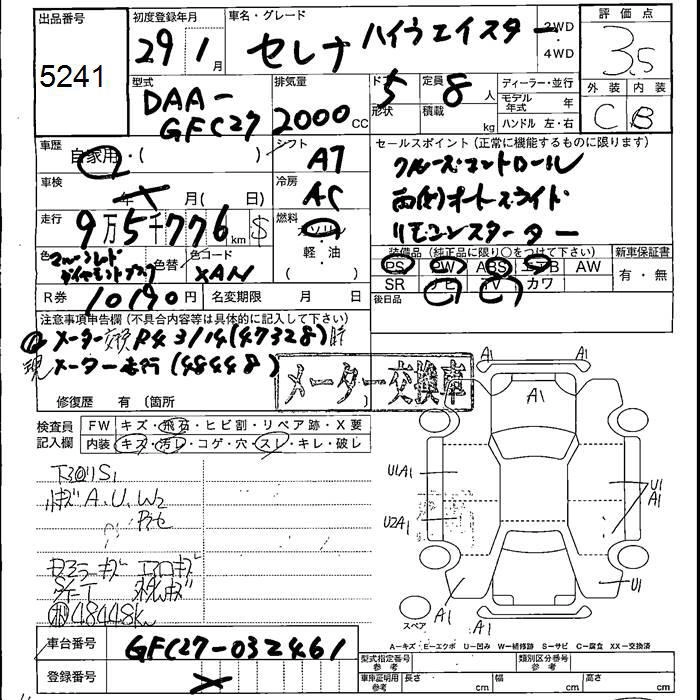 出品番号
5241
初度登録年月
29年 1月
車名・グレード
セレナ ハイウェイスター
2WD
4WD
評価点
3.5
外装 内装
C B
型式
DAA-
GFC27
排気量
2000cc
ドア
5
形状
定員
8人
積載
kg
ディーラー・並行
モデル年式 年
ハンドル 左・右
車歴
自家用・( )
シフト
AT
セールスポイント (正常に機能するものに限ります)
クルーズコントロール
両側オートスライド
リモコンスターター
車検
年 月( 日)
冷房
AC
走行
9万5千776km $
燃料
ガソリン
軽・油
色
マルーンレッド
ダイヤモンドブラック
色替
色コード
XAN
装備品 (純正品に限り○をつけて下さい)
PS PW ABS エアB AW
SR ナビ TV カワ
後日品
新車保証書
有・無
R券
10190円
名変期限 月 日
注意事項申告欄 (不具合内容等は具体的に記入して下さい)
メーター交換 R4 3/14(47328)時
現メーター走行(48448)
メーター交換車
修復歴 有 (箇所 )
検査員記入欄
FW キズ・飛石・ヒビ割・リペア跡・X要
内装 キズ・汚レ・コゲ・穴・スレ・キレ・破レ
キズ A.U.W2
48448km
A1 A1
A1
U1A1
U2A1
U1
A1
U1
A1
A1
スペア
車台番号
GFC27-032461
登録番号
A=キズ・E=エクボ U=凹み W=補修跡 S=サビ C=腐食 XX=交換済
型式指定番号
参考
類別区分番号
参考
車庫証明用
参考
長さ cm 幅 cm 高さ cm